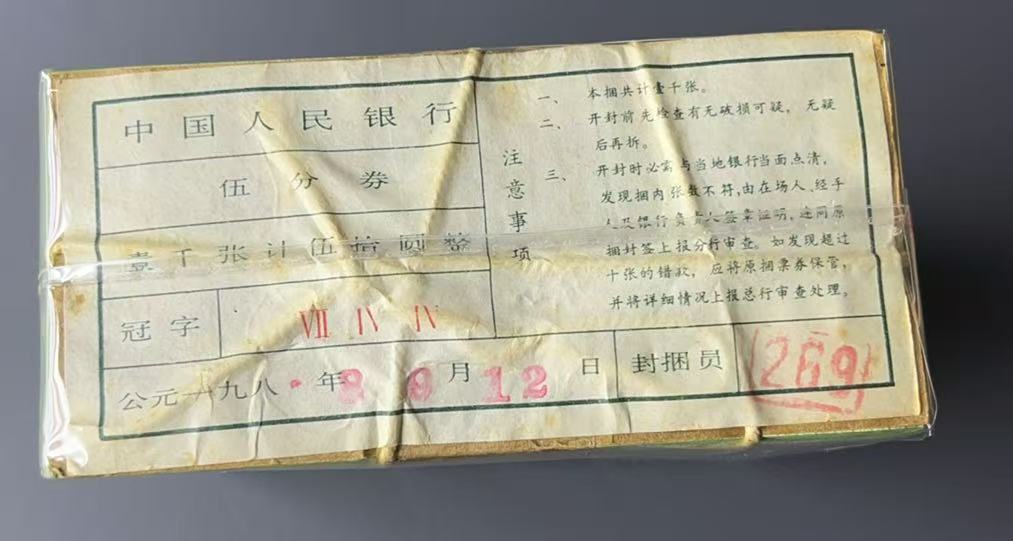 中国人民银行
伍分券
壹千张计伍拾圆整
冠字 VII IV IV
注意事项
一、本捆共计壹千张。
二、开封前先检查有无破损可疑，无疑
后再拆。
三、开封时必需与当地银行当面点清，
发现捆内张数不符,由在场人、经手
人及银行负责人签章证明，连同原
捆封签上报分行审查。如发现超过
十张的错款，应将原捆票券保管，
并将详细情况上报总行审查处理。
公元一九八 年 月 12 日
封捆员 269